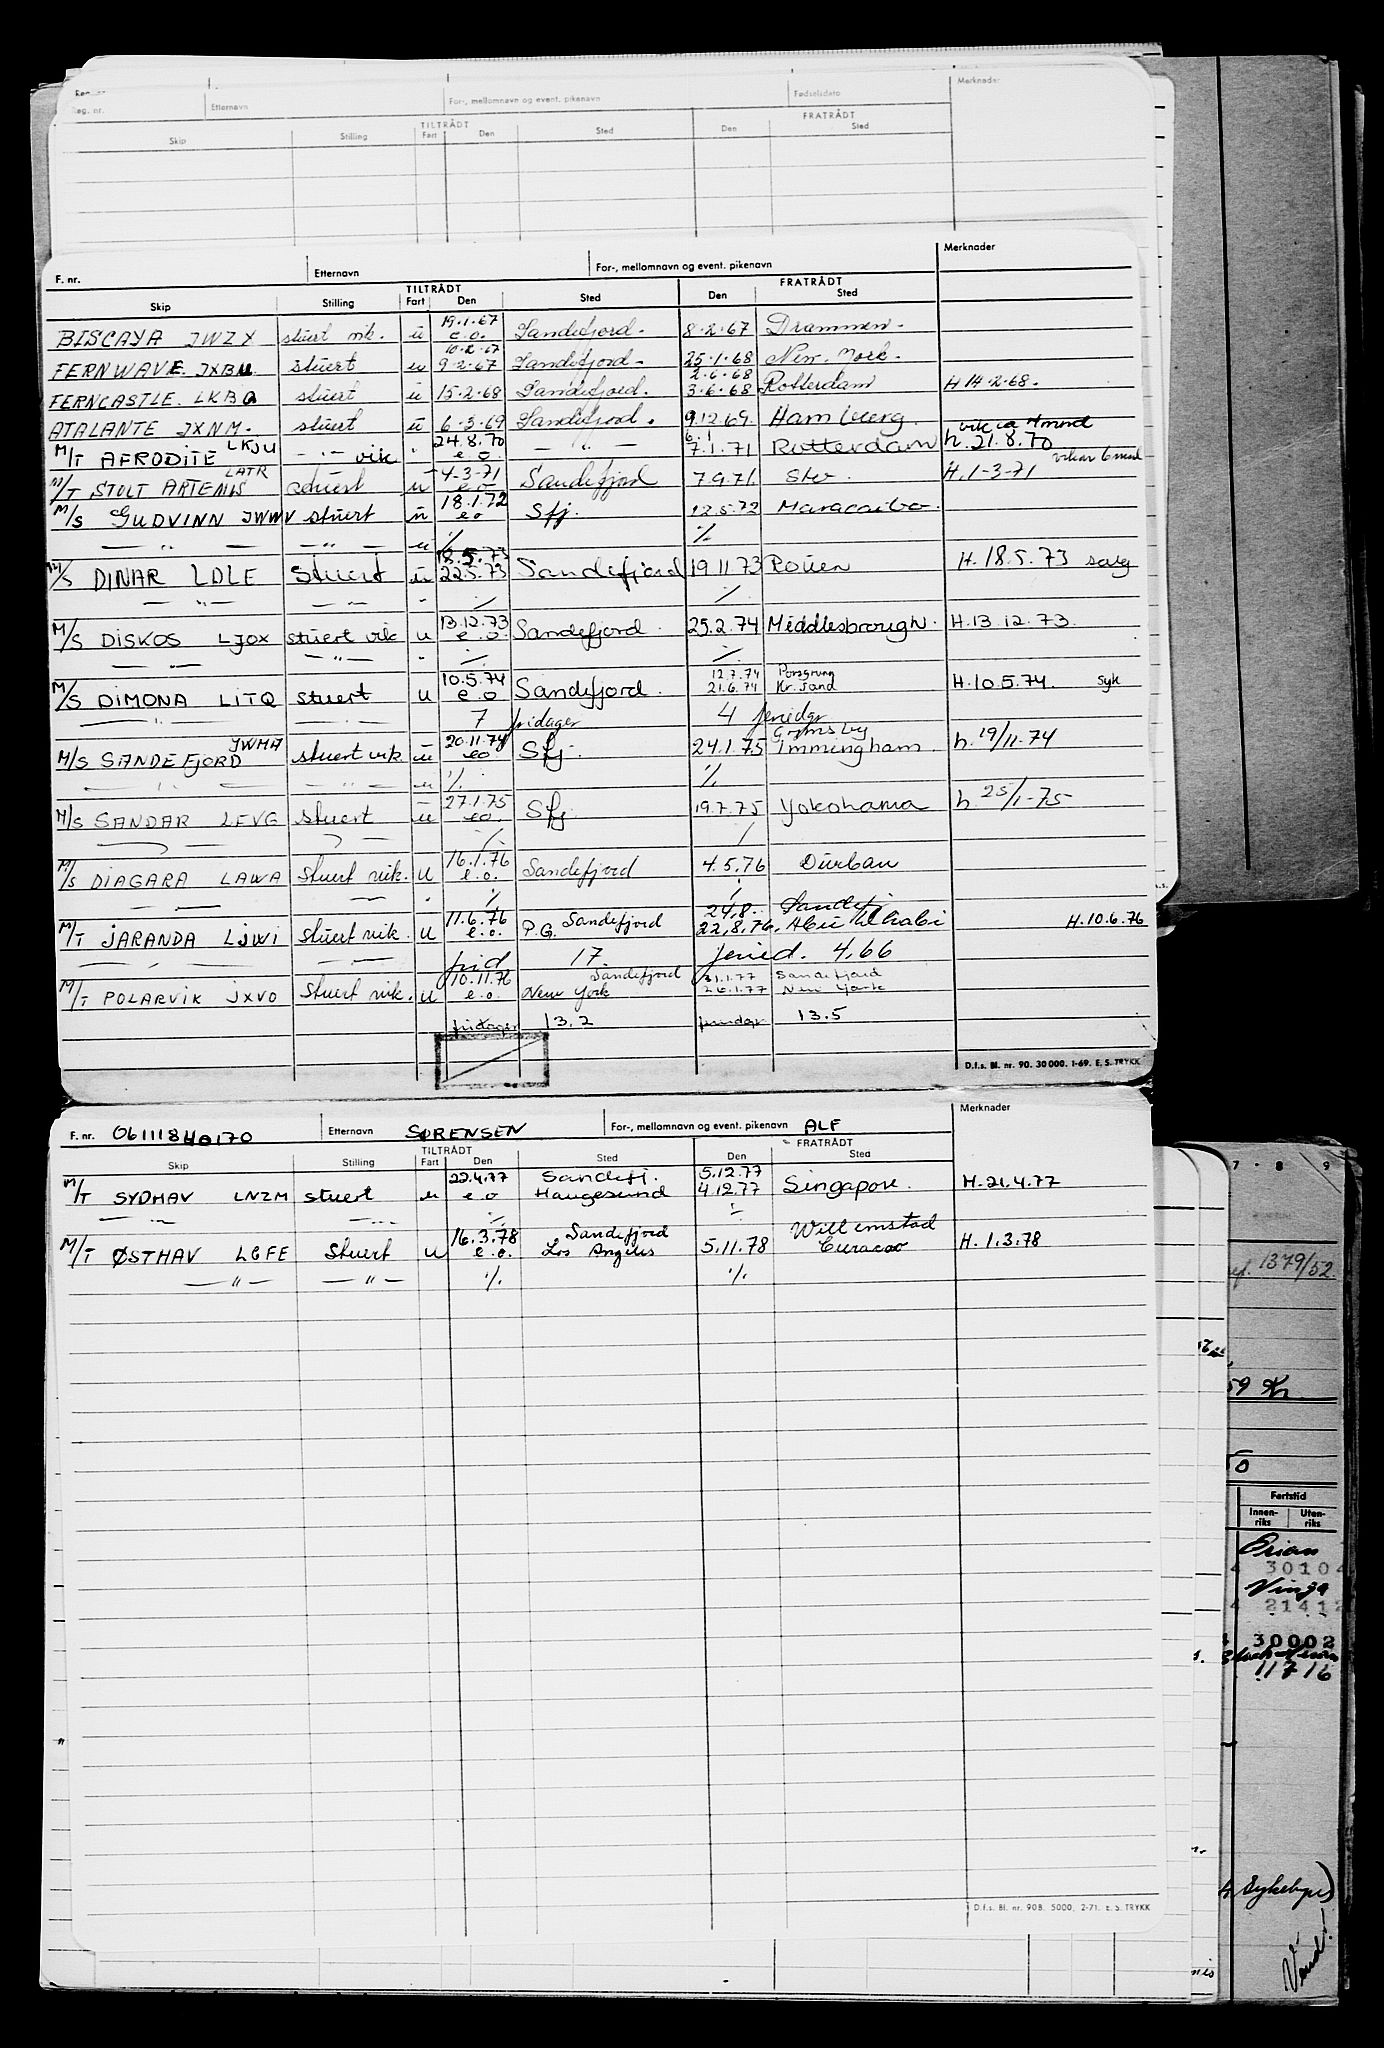 Reg. nr. Etternavn For-, mellomnavn og event. pikenavn Fødselsdato Merknader
Skip Stilling TILTRÅDT Fart Den Sted FRATRÅDT Den Sted
F. nr. Etternavn For-, mellomnavn og event. pikenavn Merknader
TILTRÅDT FRATRÅDT
Skip Stilling Fart Den Sted Den Sted
19.1.67
BISCAYA JWZX stuert vik. u e.o. Sandefjord. 8.2.67 Drammen.
10.2.67
FERNWAVE. JXBU stuert u 9.2.67 Sandefjord. 25.1.68 New York.
2.6.68
FERNCASTLE. LKBQ stuert u 15.2.68 Sandefjord. 3.6.68 Rotterdam H 14.2.68.
ATALANTE JXNM. stuert u 6.3.69 Sandefjord. 9.12.69. Hamburg.
24.8.70 6.1 vik ca 4mnd
M/T AFRODITE LKJU — " — vik " e o — " — 7.1.71 Rotterdam h. 21.8.70
vikar 6 mnd
4-3-71
M/T STOLT ARTEMIS LATR stuert u eo Sandefjord 7.9.71. H. 1-3-71
18.1.72
M/S GUDVINN JWWV stuert u eo Sfj. 12.5.72 Maracaibo.
— " — — " — u ⁒ ⁒
18.5.73
M/S DINAR LDLE Stuert u 22.5.73 Sandefjord 19.11.73 Rouen H. 18.5.73 salg
— " — — " — " ⁒ ⁒
13.12.73
M/S DISKOS LJOX stuert vik u e.o. Sandefjord. 25.2.74 Middlesbrough. H. 13.12.73.
— " — — " — " ⁒ ⁒
10.5.74 12.7.74 Porsgrunn
M/S DIMONA LITQ stuert u e.o Sandefjord. 21.6.74 Kr. sand H. 10.5.74. syk
— " — — " — 7 fridager 4 feriedgr
20.11.74 Grimsby
M/S SANDEFJORD JWMA stuert vik u eo Sfj. 24.1.75 Immingham. h. 19/11-74
— " — — " — u ⁒ ⁒
27.1.75
M/S SANDAR LEVG Stuert u eo. Sfj. 19.7.75 Yokohama h. 25/1-75
— " — — " — ⁒ ⁒
16.1.76
M/S DIAGARA LAWA Stuert vik. u e.o. Sandefjord 4.5.76 Durban
— " — — " — " ⁒ ⁒
11.6.76 24,8. Sandefj
M/T JARANDA LJWI Stuert vik. u e.o. P.G. Sandefjord 22,8,76, Abu Dhabi H. 10.6.76
— " — — " — frid 17. feried. 4,66
10.11.76 Sandefjord 31.1.77 Sandefjord
M/T POLARVIK JXVO Stuert vik. u e.o. New York 26.1.77 New York
fridager 13.2 feriedgr 13.5
D.f.s. Bl. nr. 90. 30 000. 1-69. E. S. TRYKK
F. nr. 061118 40170 Etternavn SØRENSEN For-, mellomnavn og event. pikenavn ALF Merknader
TILTRÅDT FRATRÅDT
Skip Stilling Fart Den Sted Den Sted
22.4.77 Sandefj. 5.12.77
M/T SYDHAV LNZM stuert u e o Haugesund 4.12.77 Singapore. H. 21.4.77
— " — — " — ⁒ ⁒
16.3.78 Sandefjord Willemstad
M/T ØSTHAV LGFE Stuert u e.o. Los Angeles 5.11.78 Curacao H. 1.3.78
— " — — " — ⁒ ⁒
D.f.s. Bl. nr. 90B. 5000, 2-71. E. S. TRYKK
7 - 8 9
1379/52.
59 Kr.
50
Fartstid
Innen-riks Uten-riks
30104
Vinga
21412
30002
11716
Vend!